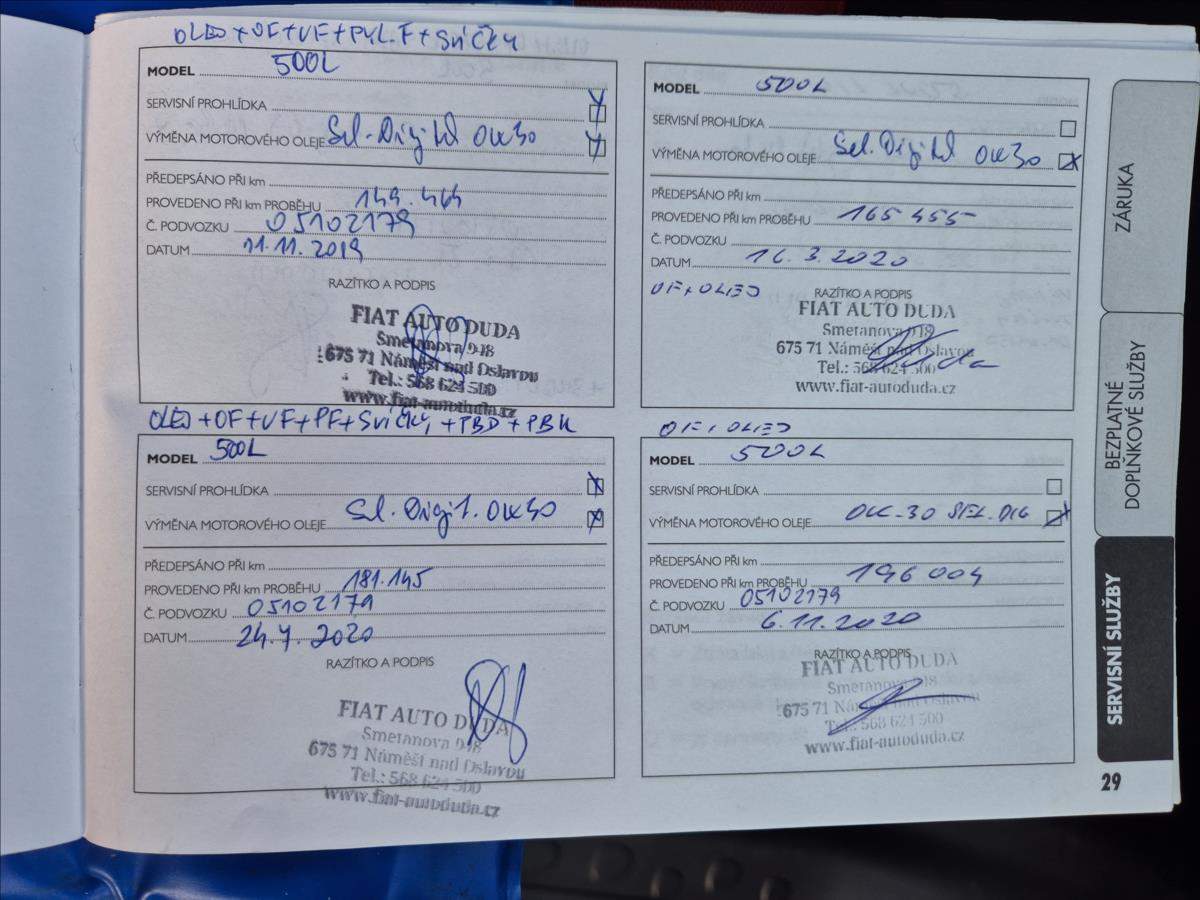 OLEJ + OF + VF + PYL.F + SVÍČKY
MODEL 500L
SERVISNÍ PROHLÍDKA
VÝMĚNA MOTOROVÉHO OLEJE Sel. Digital 0W30
PŘEDEPSÁNO PŘI km
PROVEDENO PŘI km PROBĚHU 149.464
Č. PODVOZKU 05102179
DATUM 11.11.2019
RAZÍTKO A PODPIS
FIAT AUTO DUDA
Smetanova 918
675 71 Náměšť nad Oslavou
Tel.: 568 624 500
www.fiat-autoduda.cz
MODEL 500L
SERVISNÍ PROHLÍDKA
VÝMĚNA MOTOROVÉHO OLEJE Sel. Digital 0W30
PŘEDEPSÁNO PŘI km
PROVEDENO PŘI km PROBĚHU 165 455
Č. PODVOZKU
DATUM 16.3.2020
OF + OLEJ
RAZÍTKO A PODPIS
FIAT AUTO DUDA
Smetanova 918
675 71 Náměšť nad Oslavou
Tel.: 568 624 500
www.fiat-autoduda.cz
OLEJ + OF + VF + PF + SVÍČKY + PBD + PBK
MODEL 500L
SERVISNÍ PROHLÍDKA
VÝMĚNA MOTOROVÉHO OLEJE Sel. Digit. 0W30
PŘEDEPSÁNO PŘI km
PROVEDENO PŘI km PROBĚHU 181.145
Č. PODVOZKU 05102179
DATUM 24.7.2020
RAZÍTKO A PODPIS
FIAT AUTO DUDA
Smetanova 918
675 71 Náměšť nad Oslavou
Tel.: 568 624 500
www.fiat-autoduda.cz
OF + OLEJ
MODEL 500L
SERVISNÍ PROHLÍDKA
VÝMĚNA MOTOROVÉHO OLEJE 0W-30 SEL. DIG
PŘEDEPSÁNO PŘI km
PROVEDENO PŘI km PROBĚHU 196 004
Č. PODVOZKU 05102179
DATUM 6.11.2020
RAZÍTKO A PODPIS
FIAT AUTO DUDA
Smetanova 918
675 71 Náměšť nad Oslavou
Tel.: 568 624 500
www.fiat-autoduda.cz
ZÁRUKA
BEZPLATNÉ
DOPLŇKOVÉ SLUŽBY
SERVISNÍ SLUŽBY
29